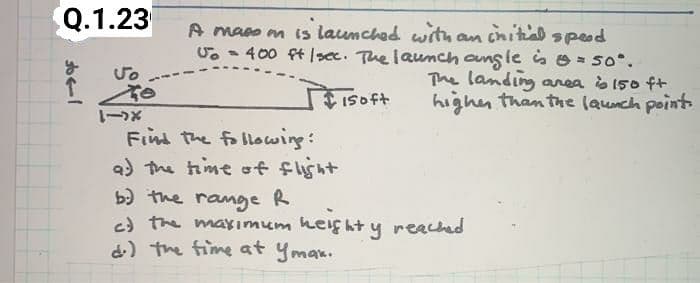 Q.1.23
A mass m is launched with an initial speed
v₀ = 400 ft/sec. The launch angle is θ = 50°.
The landing area is 150 ft
higher than the launch point.
y
v₀
θ
150ft
|→x
Find the following:
a) the time of flight
b) the range R
c) the maximum height y reached
d.) the time at ymax.